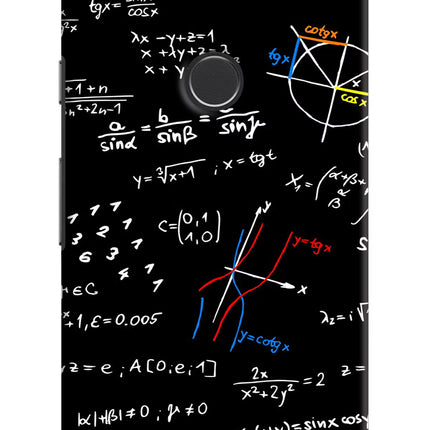 tgx = sinx/cosx
λx - y + z = 1
x + λy + z = λ
x + y
cotgx
tgx
x
cosx
+1 + n
n² + 2n - 1
a/sinα = b/sinβ = /sinγ
y = ³√x+1 ; x = tgt
C = (0,1
1,0)
1 1 1
3 2 1
6 3 1
4 1
1
y
y = tgx
x
y = cotgx
+EC
+1, Ɛ = 0.005
λ₂ = i√
z = e ; A[0; e; 1]
2x/x² + 2y² = 2
z =
|α| + |β| ≠ 0 ; γ ≠ 0
= sinx cosy